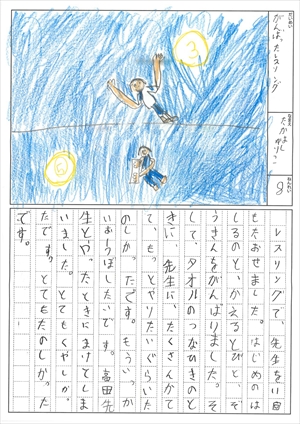 だいめい
がんばったレスリング
なまえ
たかはし かりん
ねんれい
8
レスリングで、先生を1回
もたおせました。はじめのは
しるのと、かえるとびと、ぞ
うさんをがんばりました。そ
して、タオルのつなひきのと
きに、先生に、たくさんかて
て、もっとやりたいぐらいた
のしかったです。もういっか
いおーうぼしたいです。高田先
生とやったときにまけてしま
いました。とてもくやしかっ
たです。とてもたのしかった
です。